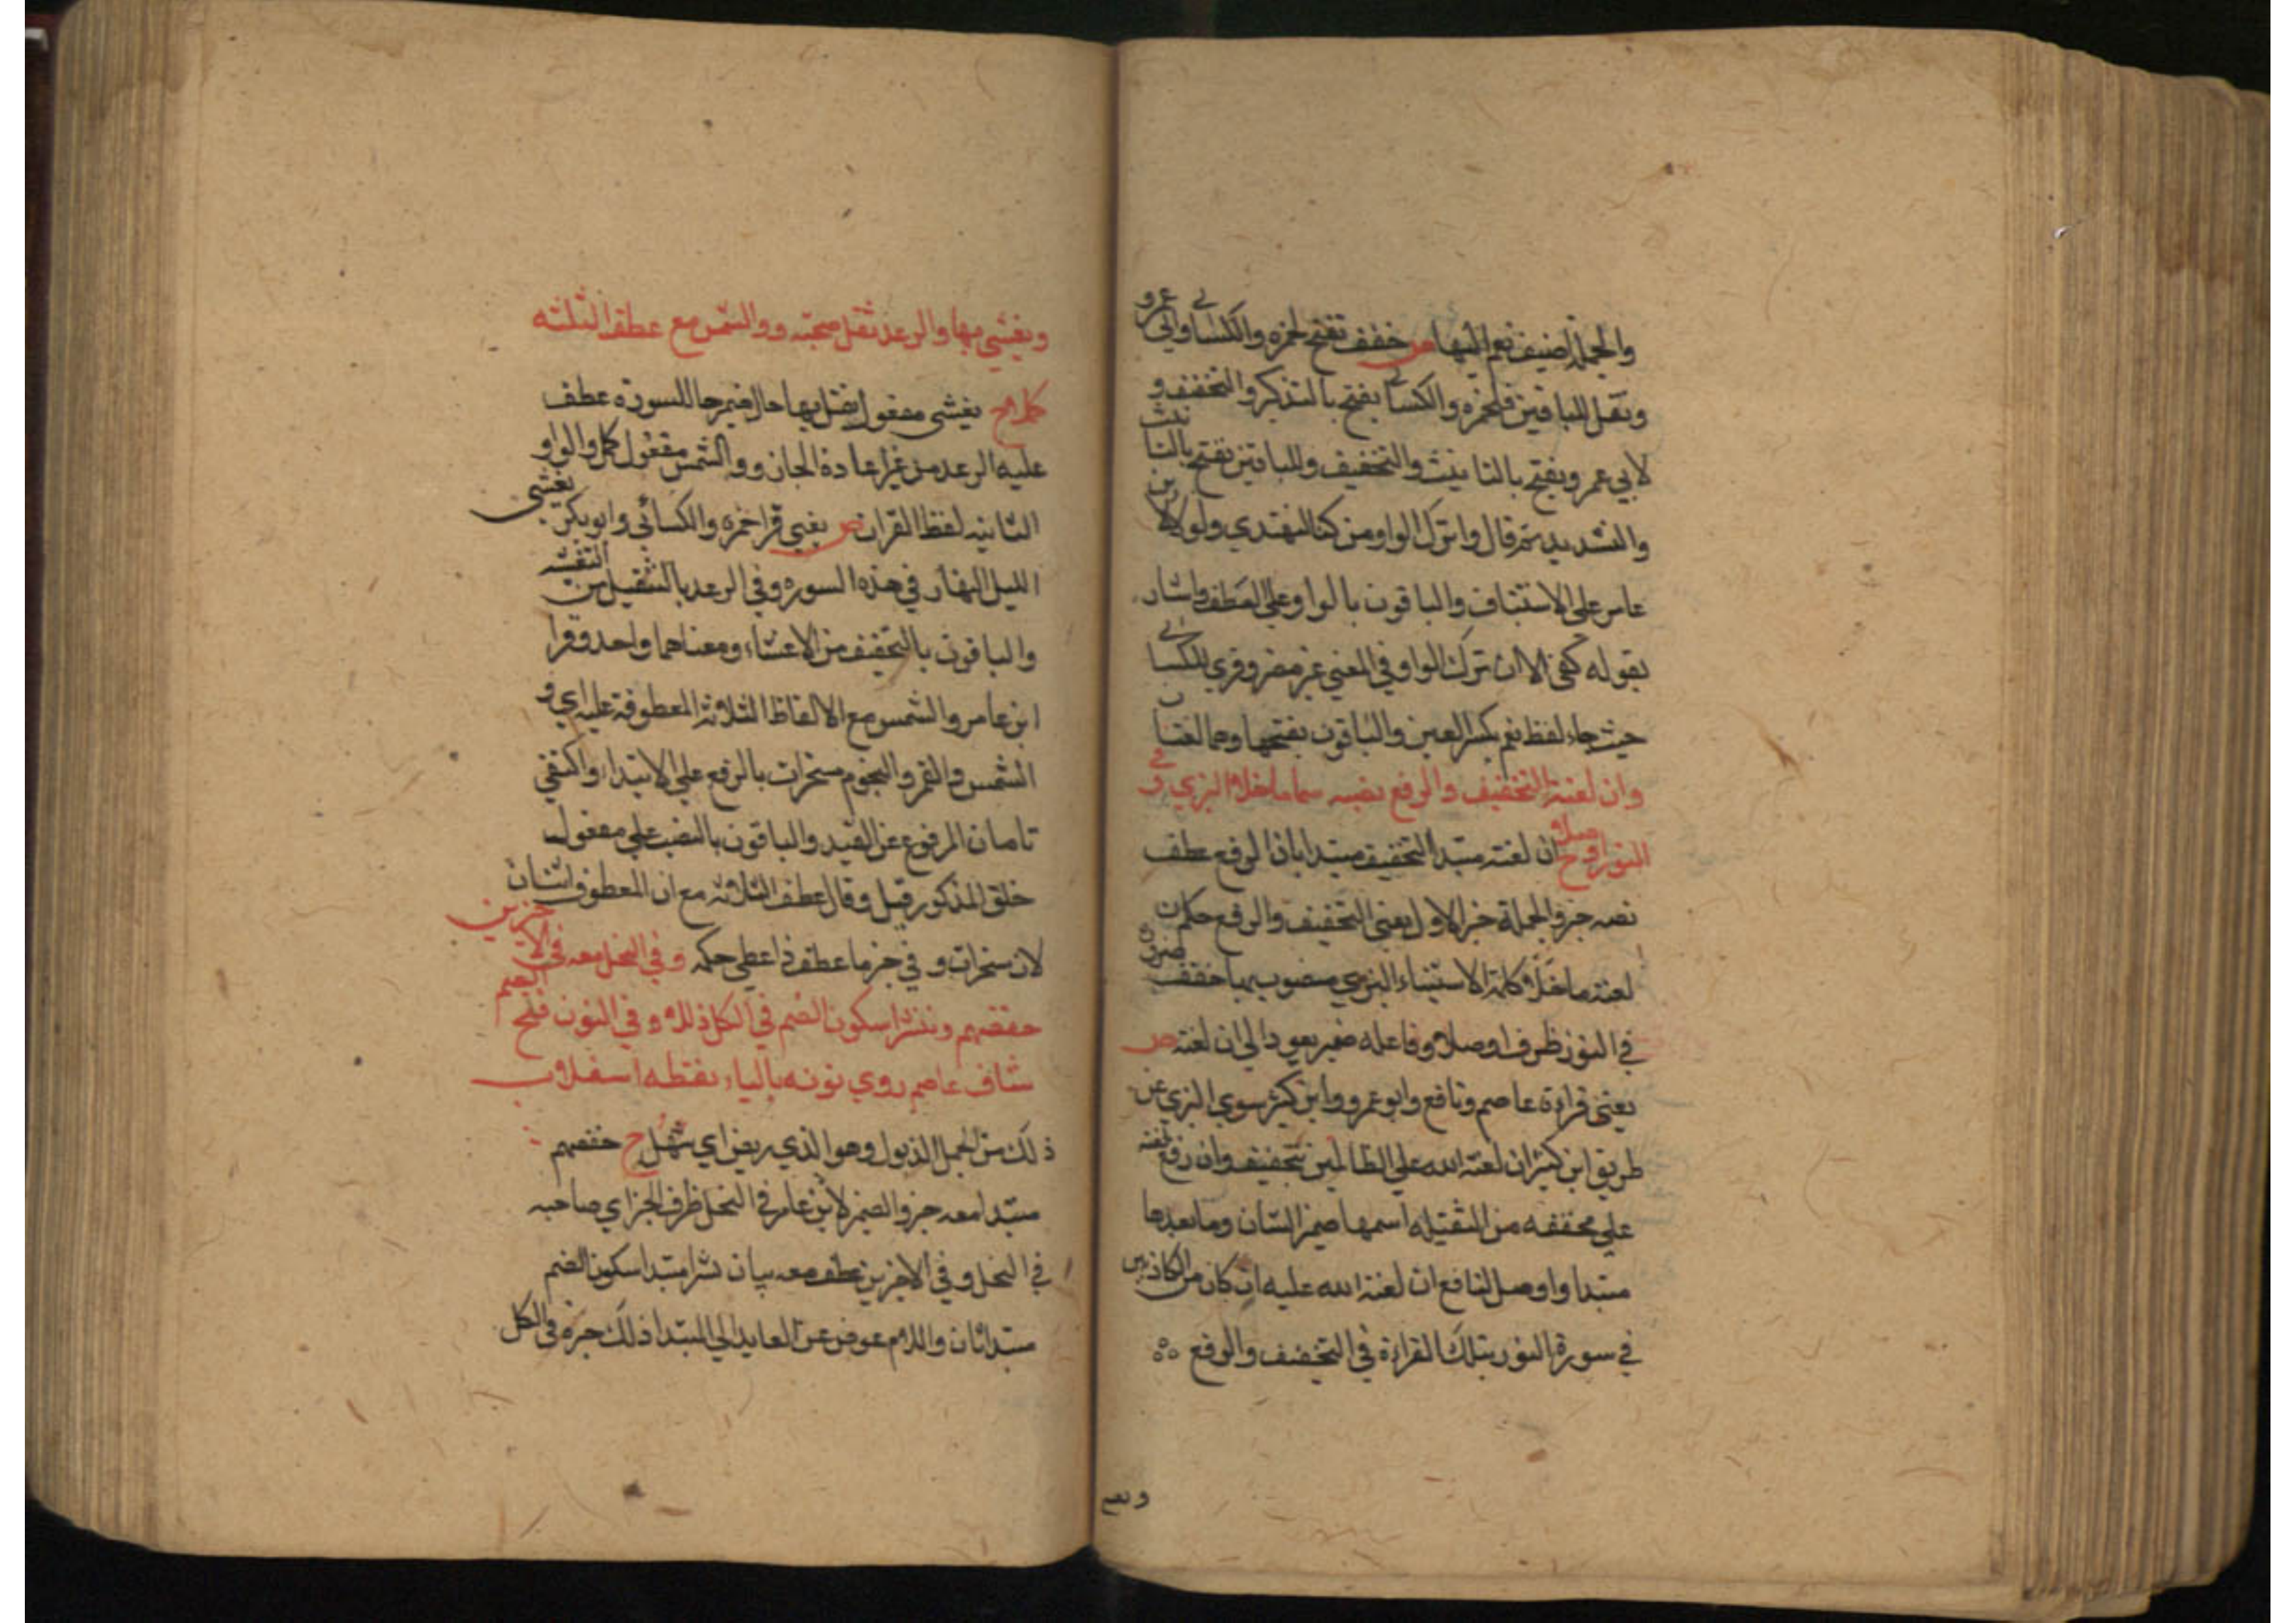 والجملة اضيف نعم اليها ص خفف تفتح لحمزه والكسائي وابي عمرو
وثقل للباقين فلحمزه والكسائي يفتح بالتذكير والتخفيف و
لابي عمرو تفتح بالتانيث والتخفيف وللباقين تفتح بالتانيث
والتشديد ثم قال واترك الواو من كنا لنهتدي ولولا لابن
عامر على الاستيناف والباقون بالواو على العطف واشار
بقوله كفى الا ان ترك الواو في المعني غير مضر وقري للكسائي
حيث جاء لفظ نعم بكسر العين والباقون بفتحها وهما لغتان
وان لعنة التخفيف والرفع نصه سما ما خلا البزي وفي
النور اوصلا ح ان لعنة مبتدا التخفيف مبتدا ثان الرفع عطف
نصه خبر والجملة خبر الاول يعني التخفيف والرفع حكم ان
لعنة ما خلا كلمة الاستيناء البزي منصوب بها خفف ضرورة
في النور ظرف اوصلا وفاعله ضمير يعود الي ان لعنة ص
يعني قراءة عاصم ونافع وابو عمرو وابن كثير سوي البزي عن
طريق ابن كثير ان لعنة الله علي الظالمين بتخفيف وان رفع لعنة
علي مخففه من الثقيله اسمها ضمير الشان وما بعدها
مبتدا واوصل لنافع ان لعنة الله عليه ان كان من الكاذبين
في سورة النور بتلك القراءة في التخفيف والرفع
ويغشي
ويغشي بها والرعد ثقل صحبته ووالشمس مع عطف الثلثه
كملا ح يغشى مفعول ثقل بها حال ضمير ها للسورة عطف
عليه الرعد من غير اعادة الجار ووالشمس مفعول كمل والواو
الثانيه لفظ القران ص يعني قرا حمزه والكسائي وابو بكر يغشى
الليل النهار في هذه السوره وفي الرعد بالتثقيل من التغشيه
والباقون بالتخفيف من الاغشاء ومعناهما واحد وقرا
ابن عامر والشمس مع الالفاظ الثلاثة المعطوفة عليه اي و
الشمس والقمر والنجوم مسخرات بالرفع علي الابتداء واكتفي
خلق المذكور قبل وقال عطف الثلاثه مع ان المعطوف اثنان
لان مسخرات و في خبر ما عطف فاعطي حكمه وفي النحل معه في الاخيرين
حفصهم ونشرا سكون الضم في الكل ذللا وفي النون فتح الضم
شاف عاصم روي نونه بالياء نقطه اسفلا ب
ذلك من الجمل الذلول وهو الذي ريض اي سهل ح حفصهم
مبتدا معه خبر والضمير لابن عامر في النحل ظرف الخبر اي صاحبه
في النحل وفي الاخيرين عطف معه بيان نشرا مبتدا سكون الضم
مبتدا ثان واللام عوض عن العايد الي المبتدا ذلك خبره في الكل